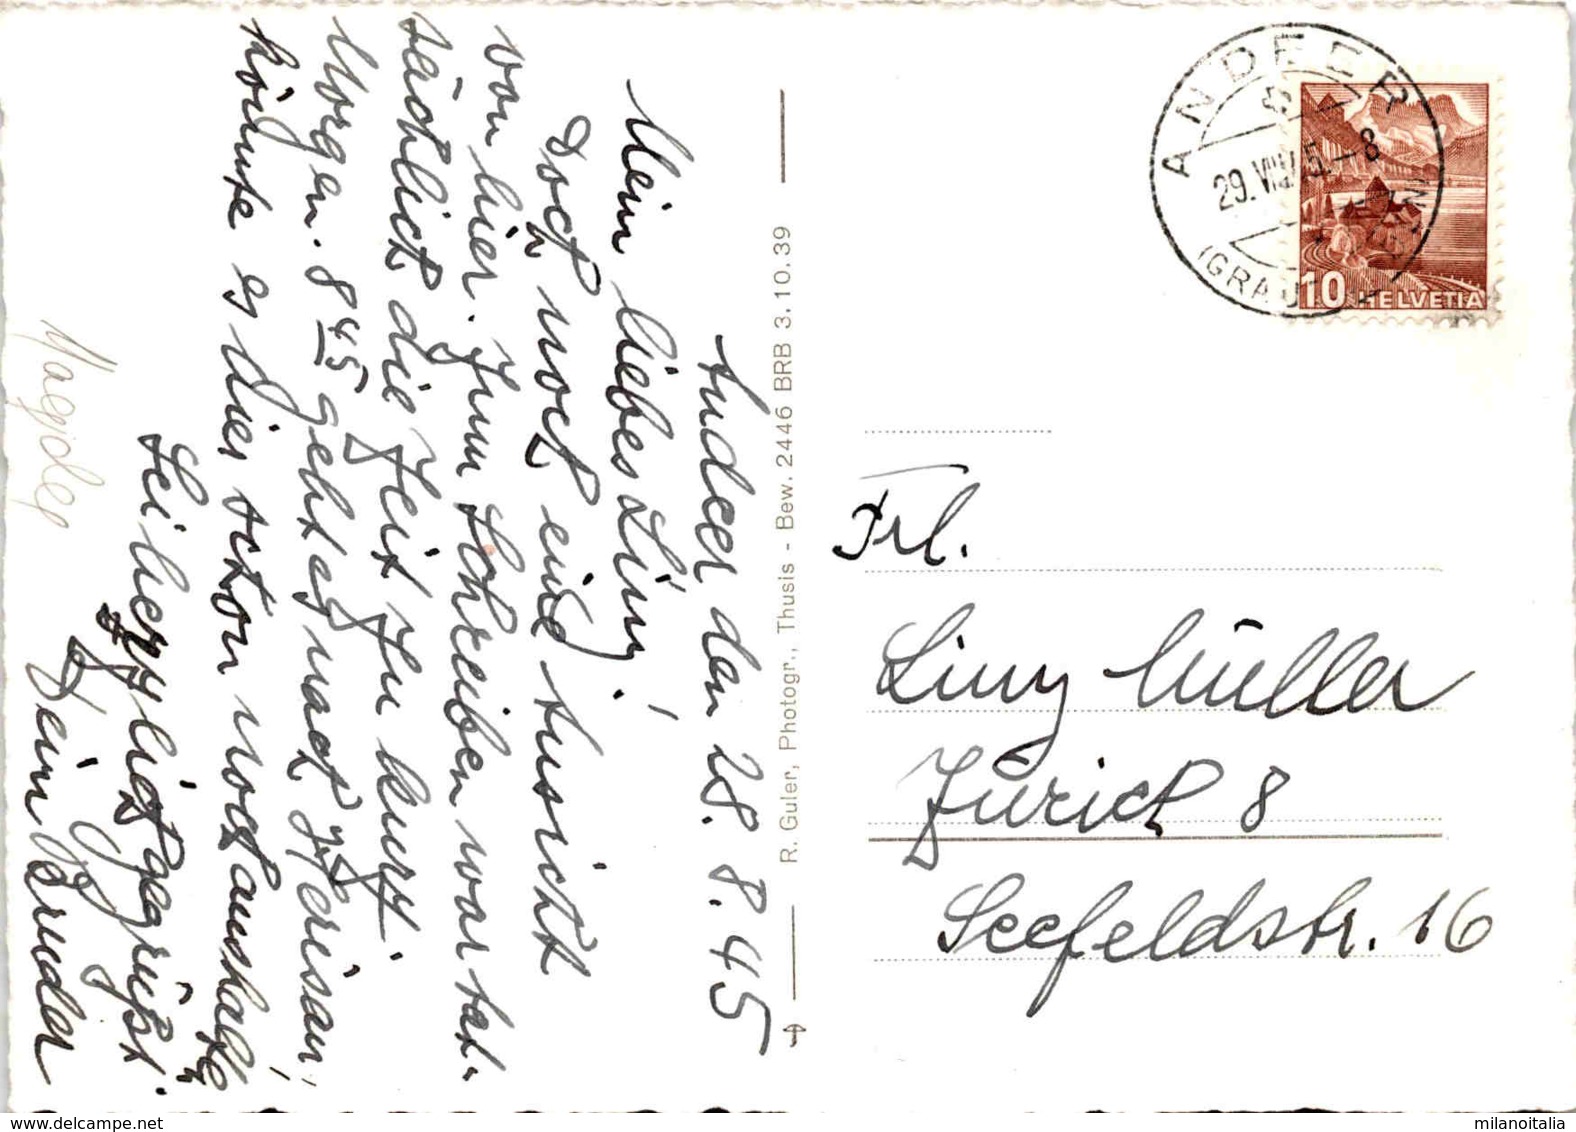 Andeer den 28. 8. 45
Mein liebes Liny!
Doch noch eine Ansicht
von hier. Zum Schreiben war tat-
sächlich die Zeit zu kurz.
Morgen. 8 45 geht es nach Herisau,
könnte es hier schon noch aushalten
Sei herzlich gegrüsst
Dein Bruder
R. Guler, Photogr., Thusis - Bew. 2446 BRB 3.10.39
ANDEER
29. VIII. 45 - 8
(GRAUB
10 HELVETIA
Frl.
Liny Müller
Zürich 8
Seefeldstr. 16
delcampe.net
milanoitalia